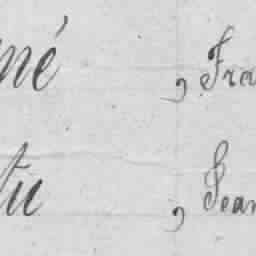 mé , Fra
tu , Jean